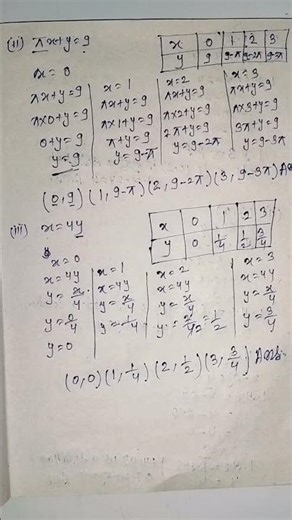 (ii) πx+y=9
x 0 1 2 3
y 9 9-π 9-2π 9-3π
x = 0
πx+y=9
πx0+y=9
0+y=9
y=9
x = 1
πx+y=9
πx1+y=9
π+y=9
y=9-π
x=2
πx+y=9
πx2+y=9
2π+y=9
y=9-2π
x=3
πx+y=9
πx3+y=9
3π+y=9
y=9-3π
(0,9) (1, 9-π) (2, 9-2π) (3, 9-3π) Ans
(iii) x=4y
x 0 1 2 3
y 0 1/4 1/2 3/4
x=0
x=4y
y=x/4
y=0/4
y=0
x=1
x=4y
y=x/4
y=1/4
x=2
x=4y
y=x/4
y=2/42=1/2
x=3
x=4y
y=x/4
y=3/4
(0,0) (1, 1/4) (2, 1/2) (3, 3/4) Ans